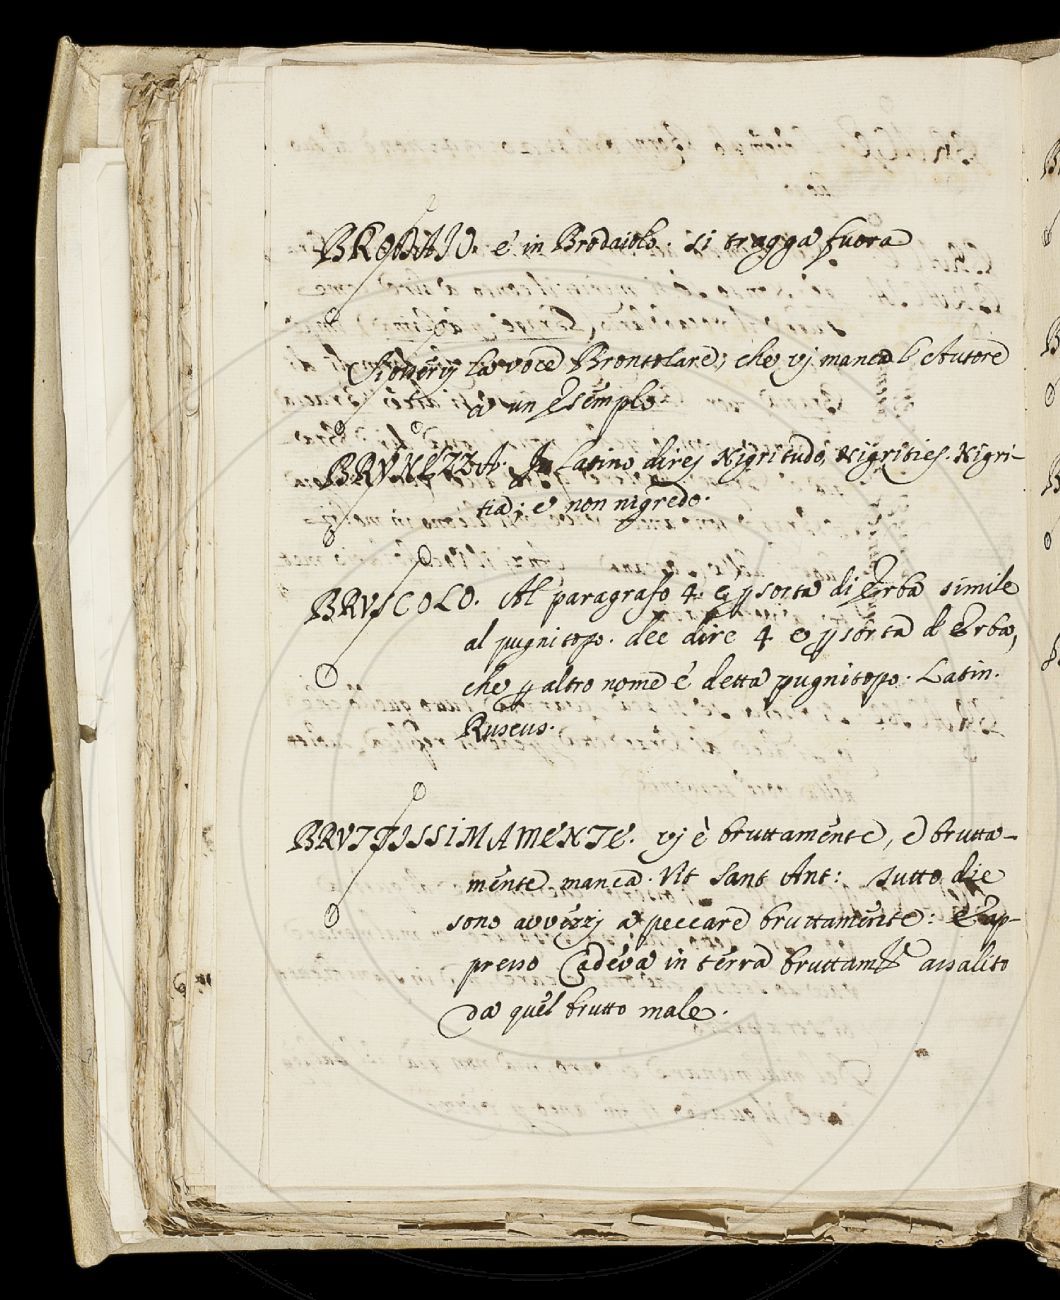 BRODAIO. è in Brodaiolo. si tragga fuora
la voce Brontolare; che vj manca l Autore
a un Esemplo
BRVNEZZA. In Latino direj Nigritudo, Nigrities. Nigri-
tia; e non nigredo.
BRVSCOLO. Al paragrafo 4. e p sorta di Erba simile
al pugnitopo. dee dire 4 e p sorta di Erba,
che p altro nome è detta pugnitopo. Latin.
Ruscus.
BRVTTISSIMAMENTE. vj è bruttamente, e brutta-
mente manca. Vit Sant Ant: tutto die
sono avvezzj a peccare bruttamente: E ap-
presso Cadeva in terra bruttamte assalito
da quel brutto male.